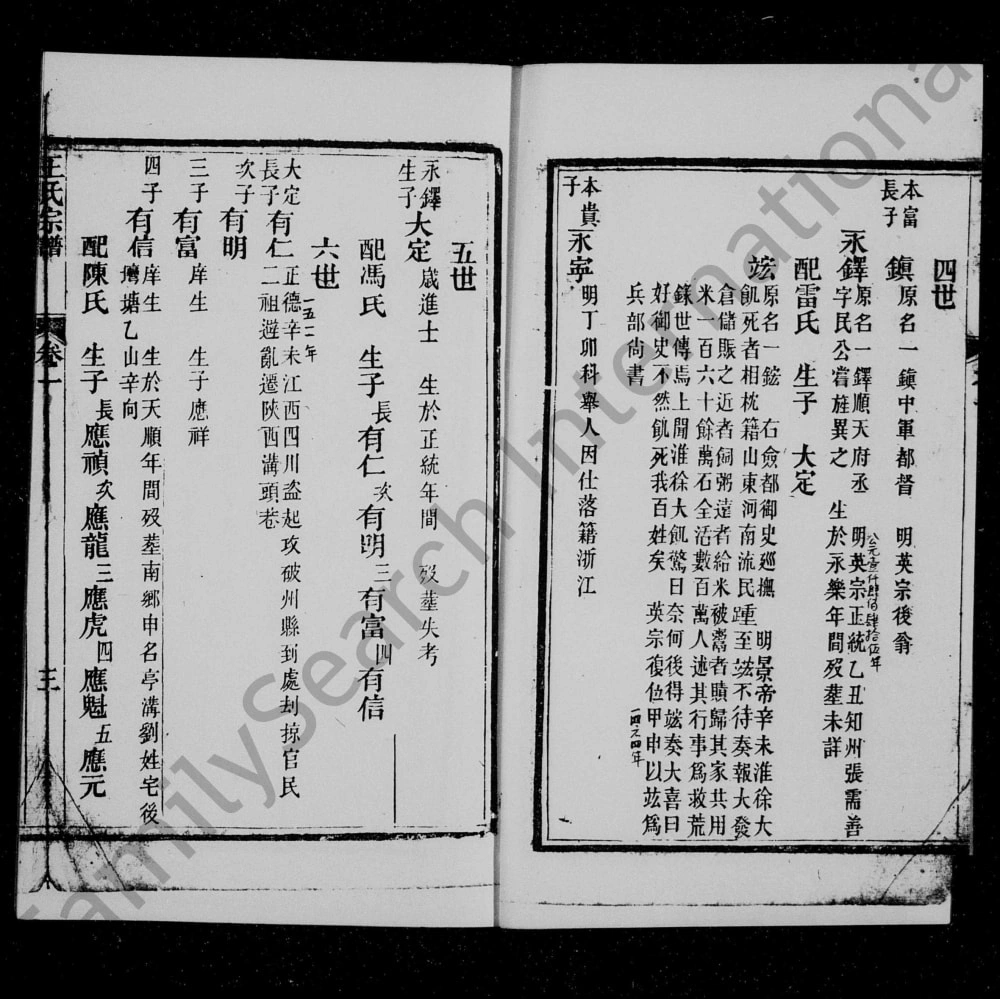 四世
本富
長子
鎭 原名一鎭中軍都督 明英宗後翁
永鐸 原名一鐸順天府丞 明英宗正統乙丑知州張需善
字民公嘗旌異之 生於永樂年間歿塟未詳
公元壹仟肆佰肆拾伍年
配雷氏 生子 大定
竑 原名一鋐 右僉都御史廵撫 明景帝辛未淮徐大
飢死者相枕籍山東河南流民踵至竑不待奏報大發
倉儲賑之近者飼粥遠者給米被鬻者贖歸其家共用
米一百六十餘萬石全活數百萬人述其行事爲救荒
錄世傳焉上聞淮徐大飢驚曰奈何後得竑奏大喜曰
好御史不然飢死我百姓矣 英宗復位甲申以竑爲
一四六四年
兵部尚書
本貴
子
永寧 明丁卯科舉人因仕落籍浙江
五世
永鐸
生子
大定 歲進士 生於正統年間 歿塟失考
配馮氏 生子長有仁次有明三有富四有信
六世
一五一一年
大定
長子
有仁 正德辛未江西四川盗起攻破州縣到處刦掠官民
二祖避亂遷陝西溝頭巷
次子有明
三子有富 庠生 生子應祥
四子有信 庠生 生於天順年間歿塟南鄉申名亭溝劉姓宅後
灣塘乙山辛向
配陳氏 生子長應禎次應龍三應虎四應魁五應元
王氏宗譜
卷一
三
FamilySearch International